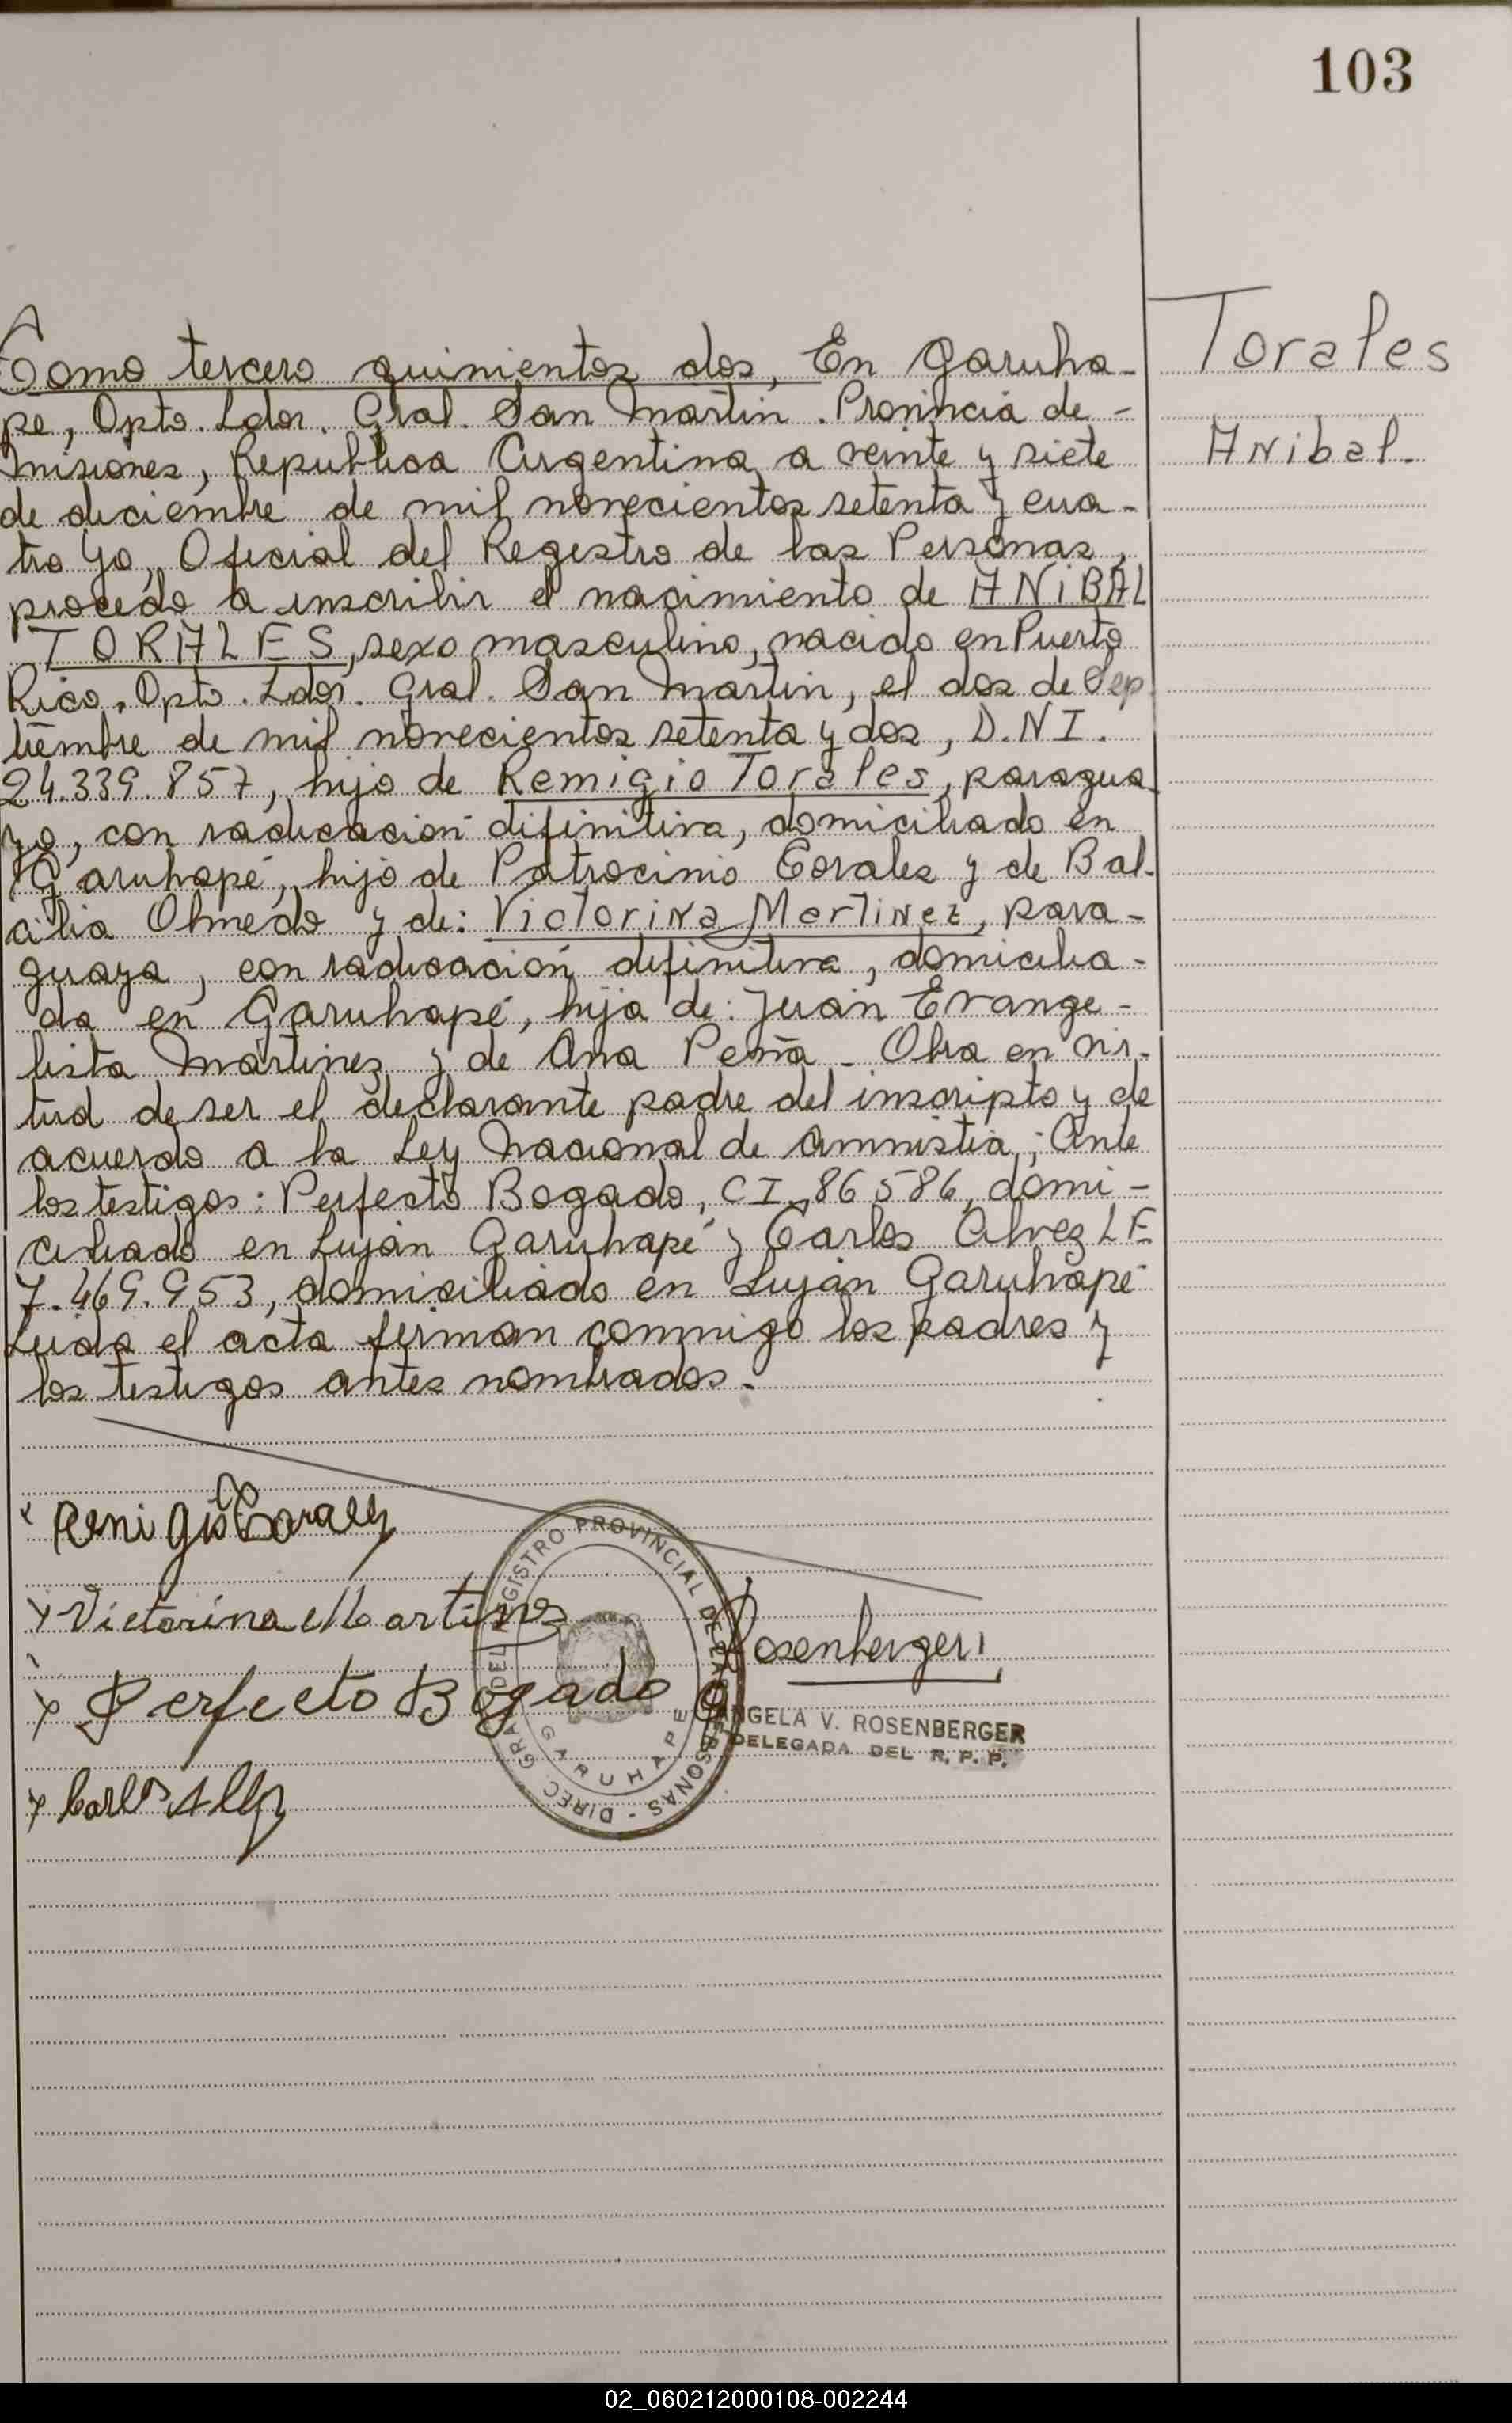 103
Tomo tercero quinientos dos, En Garuha-
pe, Dpto. Ldor. Gral. San Martin. Provincia de -
Misiones, Republica Argentina a veinte y siete
de diciembre de mil novecientos setenta y cua-
tro Yo, Oficial del Registro de las Personas,
procedo a inscribir el nacimiento de ANIBAL
TORALES, sexo masculino, nacido en Puerto
Rico, Dpto. Ldor. Gral. San Martin, el dos de Sep
tiembre de mil novecientos setenta y dos, D.N.I.
24.339.857, hijo de Remigio Torales, paragua
yo, con radicación difinitiva, domiciliado en
Garuhapé, hijo de Patrocinio Torales y de Bal-
cilia Olmedo y de: Victorina Martinez, para-
guaya, con radicación difinitiva, domicilia-
da en Garuhapé, hija de: Juan Evange-
lista Martinez y de Ana Peña - Obra en vir-
tud de ser el declarante padre del inscripto y de
acuerdo a la Ley Nacional de Amnistia; Ante
los testigos: Perfecto Bogado, CI. 86586, domi-
ciliado en Luján Garuhapé y Carlos Alvez LE
7.469.953, domiciliado en Luján Garuhapé
Leida el acta firman conmigo los padres y
los testigos antes nombrados.
Torales
Anibal.
x Remigio Torales
x Victorina Martinez
x Perfecto Bogado
x Carlos Alvez
DIREC. GRAL. DEL REGISTRO PROVINCIAL DE LAS PERSONAS -
GARUHAPE
Rosenberger
ANGELA V. ROSENBERGER
DELEGADA DEL R. P. P.
02_060212000108-002244